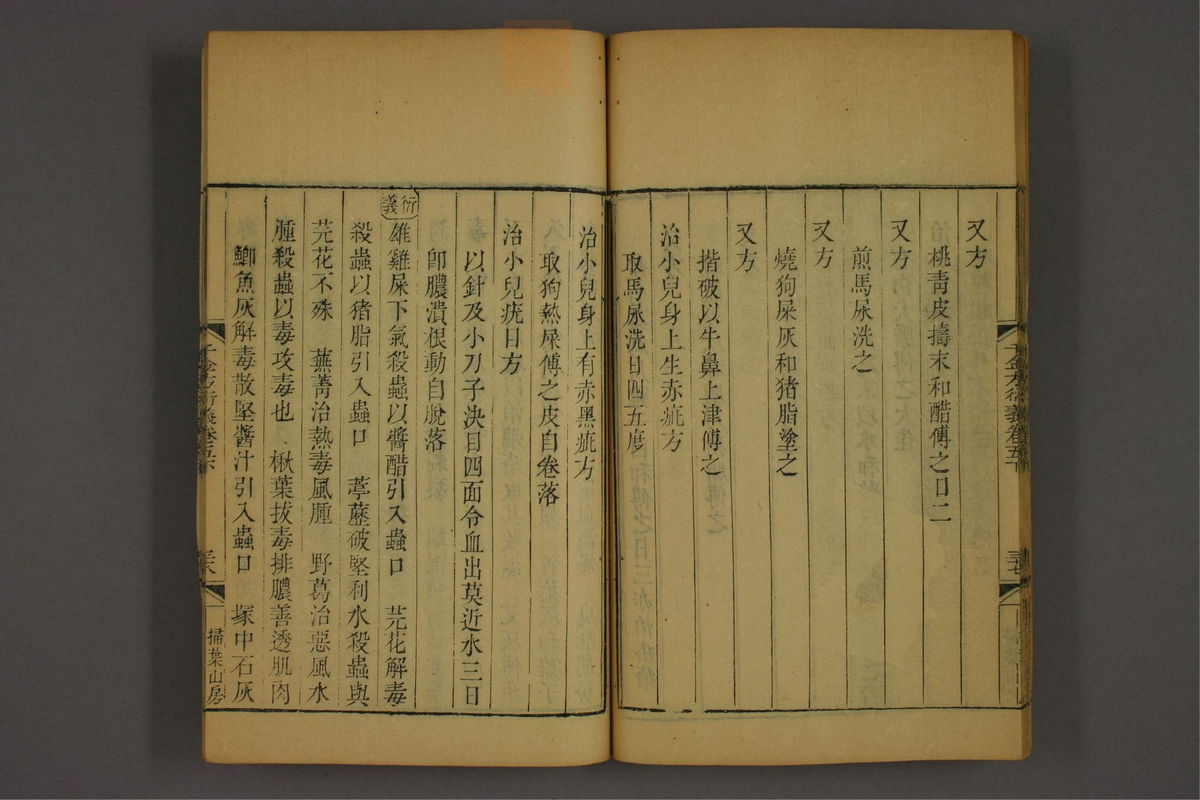 又方
桃靑皮擣末和醋傅之日二
又方
煎馬尿洗之
又方
燒狗屎灰和猪脂塗之
又方
揩破以牛鼻上津傅之
治小兒身上生赤疵方
取馬尿洗日四五度
千金方衍義卷五下
治小兒身上有赤黑疵方
取狗熱屎傅之皮自卷落
治小兒疣目方
以針及小刀子決目四面令血出莫近水三日
卽膿潰根動自脫落
衍義
雄雞屎下氣殺蟲以醬醋引入蟲口　芫花解毒
殺蟲以猪脂引入蟲口　葶藶破堅利水殺蟲與
芫花不殊　蕪菁治熱毒風腫　野葛治惡風水
腫殺蟲以毒攻毒也　楸葉拔毒排膿善透肌肉
鯽魚灰解毒散堅醬汁引入蟲口　塚中石灰
千金方衍義卷五下
掃葉山房